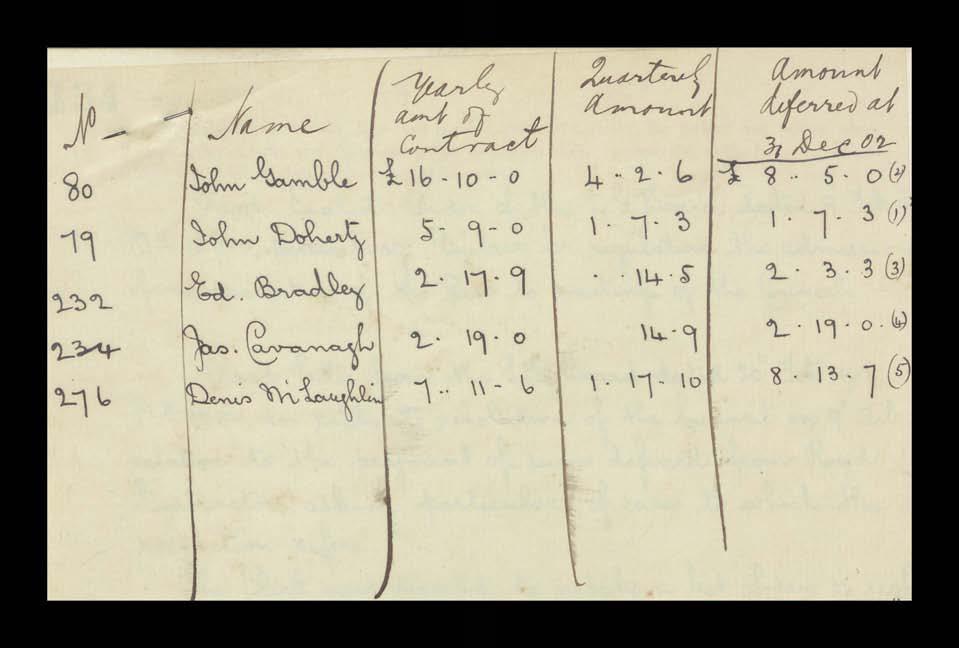 No Name Yearly amt of Contract Quarterly Amount Amount deferred at 31 Dec 02
80 John Gamble £16-10-0 4.2.6 £ 8.. 5.0 (2)
79 John Doherty 5. 9-0 1. 7.3 1. 7.3 (1)
232 Ed. Bradley 2.17.9 . 14.5 2.3.3 (3)
234 Jas. Cavanagh 2. 19.0 14.9 2.19.0. (4)
276 Denis McLaughlin 7.. 11-6 1.17.10 8.13.7 (5)